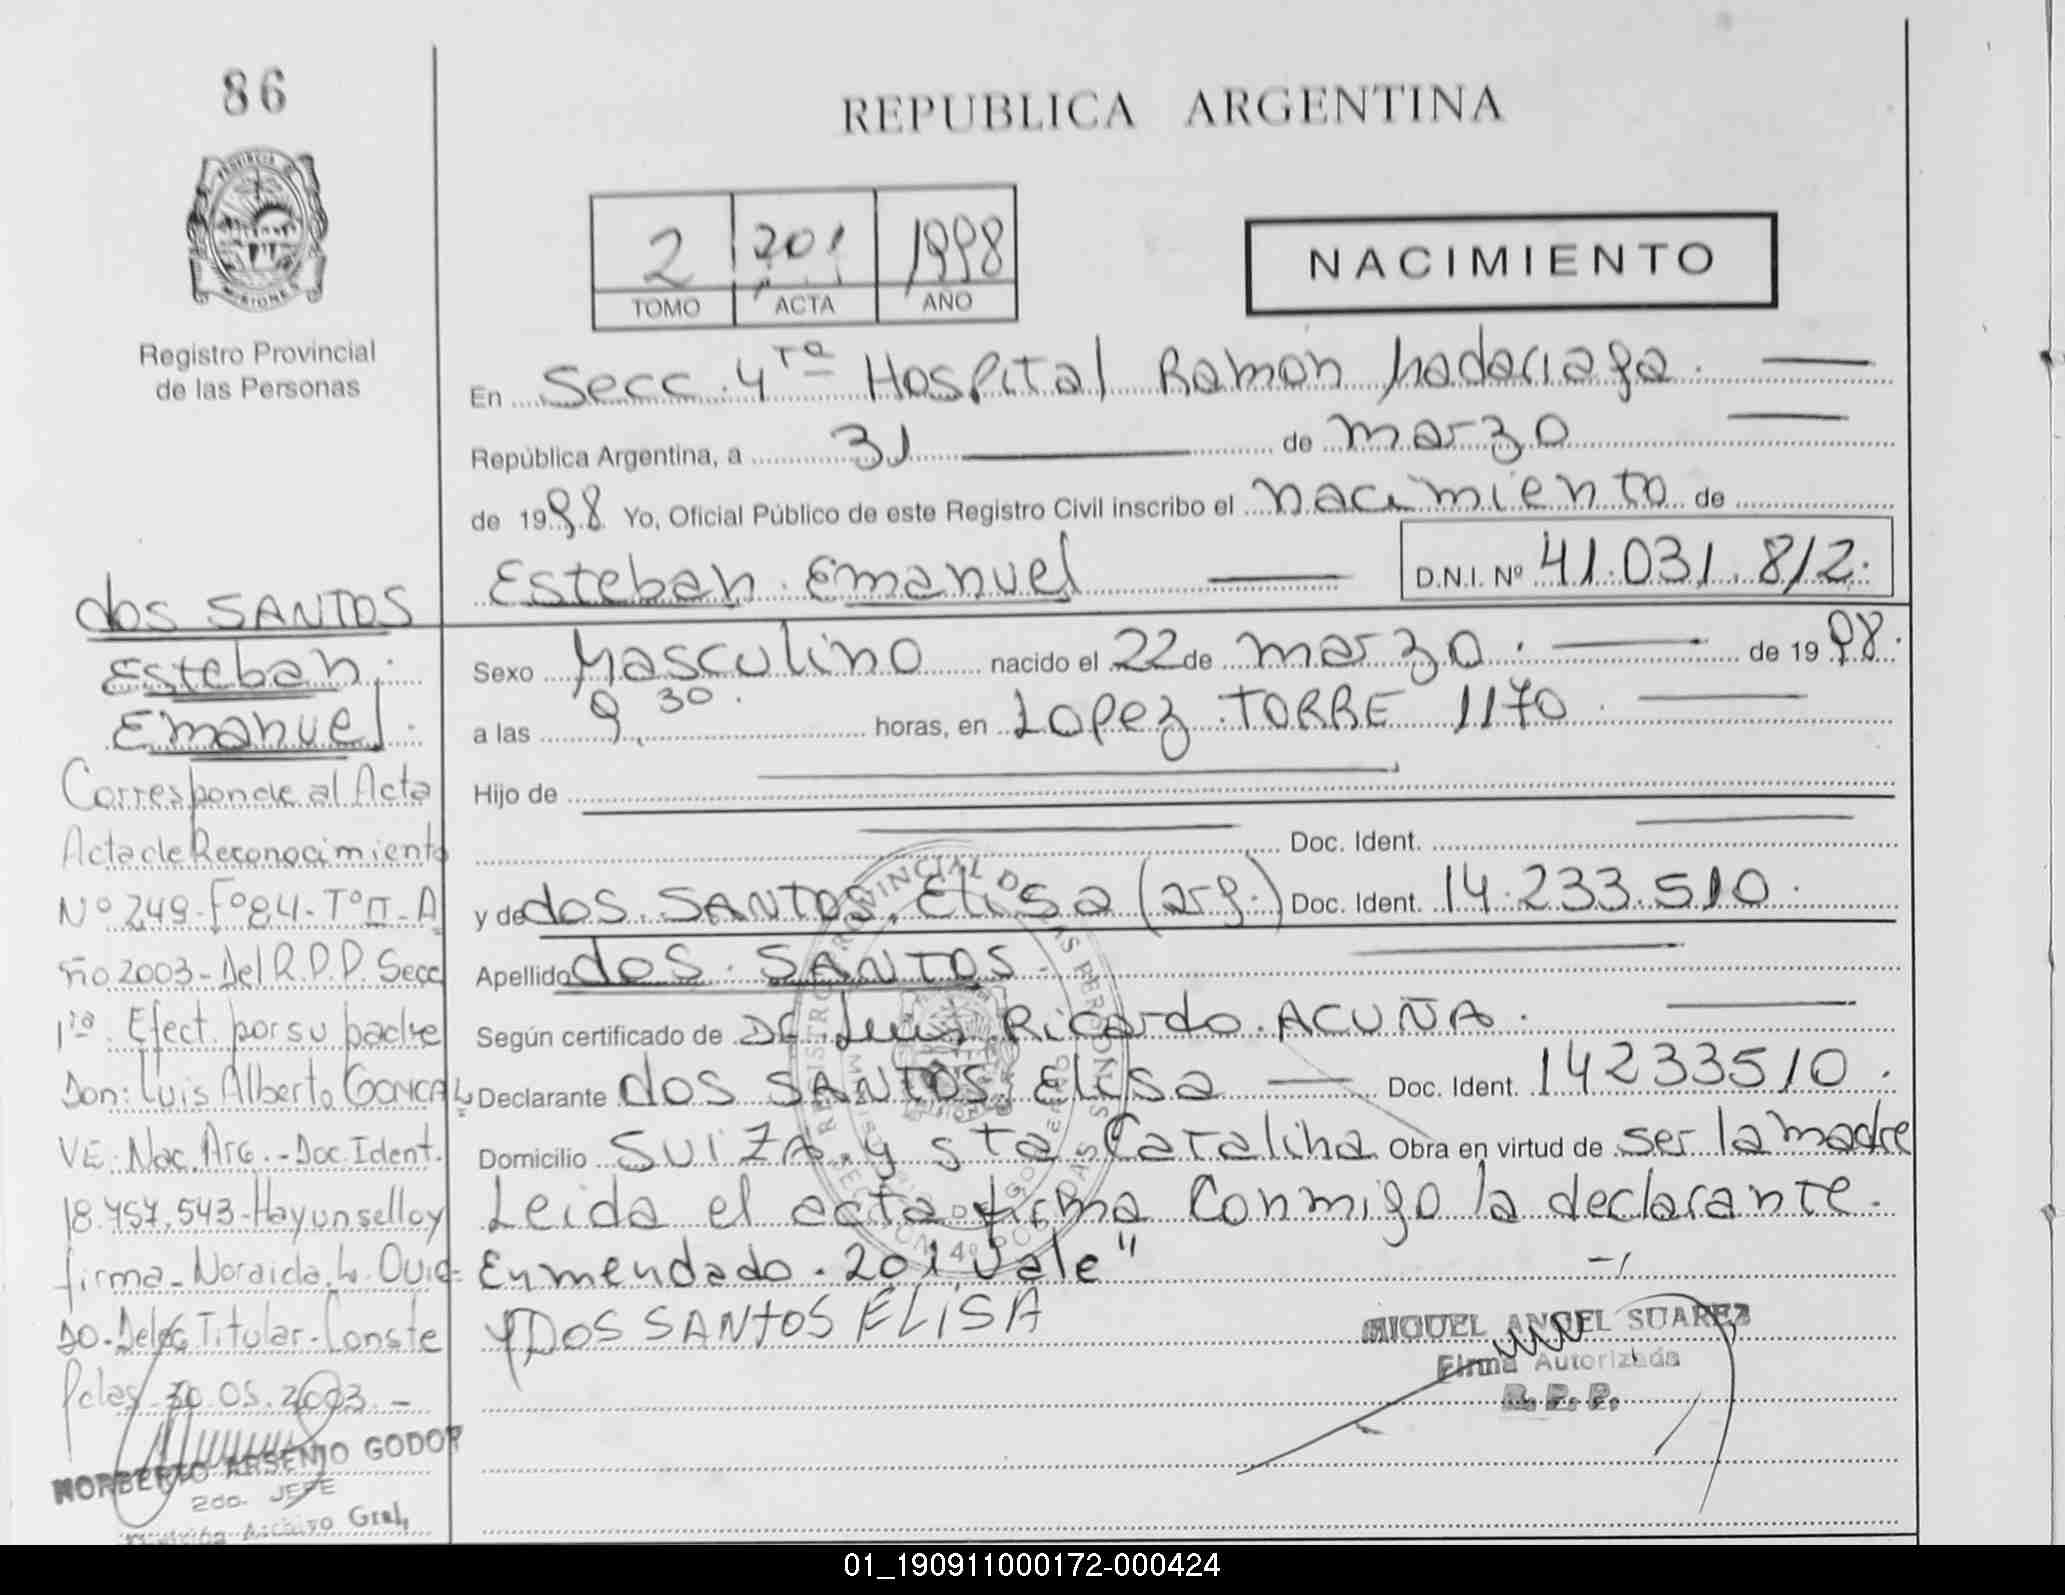 86
REPUBLICA ARGENTINA
PROVINCIA DE MISIONES
2 201 1998
TOMO ACTA AÑO
NACIMIENTO
Registro Provincial
de las Personas
En Secc. 4ta Hospital Ramon Madariaga.
República Argentina, a 31 de marzo
de 1998 Yo, Oficial Público de este Registro Civil inscribo el nacimiento de
Esteban Emanuel D.N.I. Nº 41.031.812.
Sexo Masculino nacido el 22 de marzo. de 1998.
a las 9,30. horas, en Lopez TORRE 1170.
Hijo de
Doc. Ident.
y de dos SANTOS, Elisa (arg.) Doc. Ident. 14.233.510.
Apellido dos SANTOS.
Según certificado de Dr Luis Ricardo ACUÑA.
Declarante dos SANTOS, Elisa Doc. Ident. 14233510.
Domicilio SUIZA y sta Catalina Obra en virtud de ser la madre
Leida el acta firma Conmigo la declarante.
Enmendado. 201 Vale"
DOS SANTOS ELISA
MIGUEL ANGEL SUAREZ
Firma Autorizada
R. P. P.
dos SANTOS
Esteban
Emanuel.
Corresponde al Acta
Acta de Reconocimiento
Nº 249-Fº84-TºII-A
ño 2003-Del R.P.P. Secc
1ra. Efect. por su padre
Don: Luis Alberto GONCAL
VE-Nac. Arg.-Doc. Ident.
18.757.543-Hay un sello y
firma-Noraida. L. Ovie
DO-Deleg Titular-Conste
Pdas 30.05.2003.-
NORBERTO ARSENIO GODOY
2do. JEFE
División Archivo Gral.
01_190911000172-000424